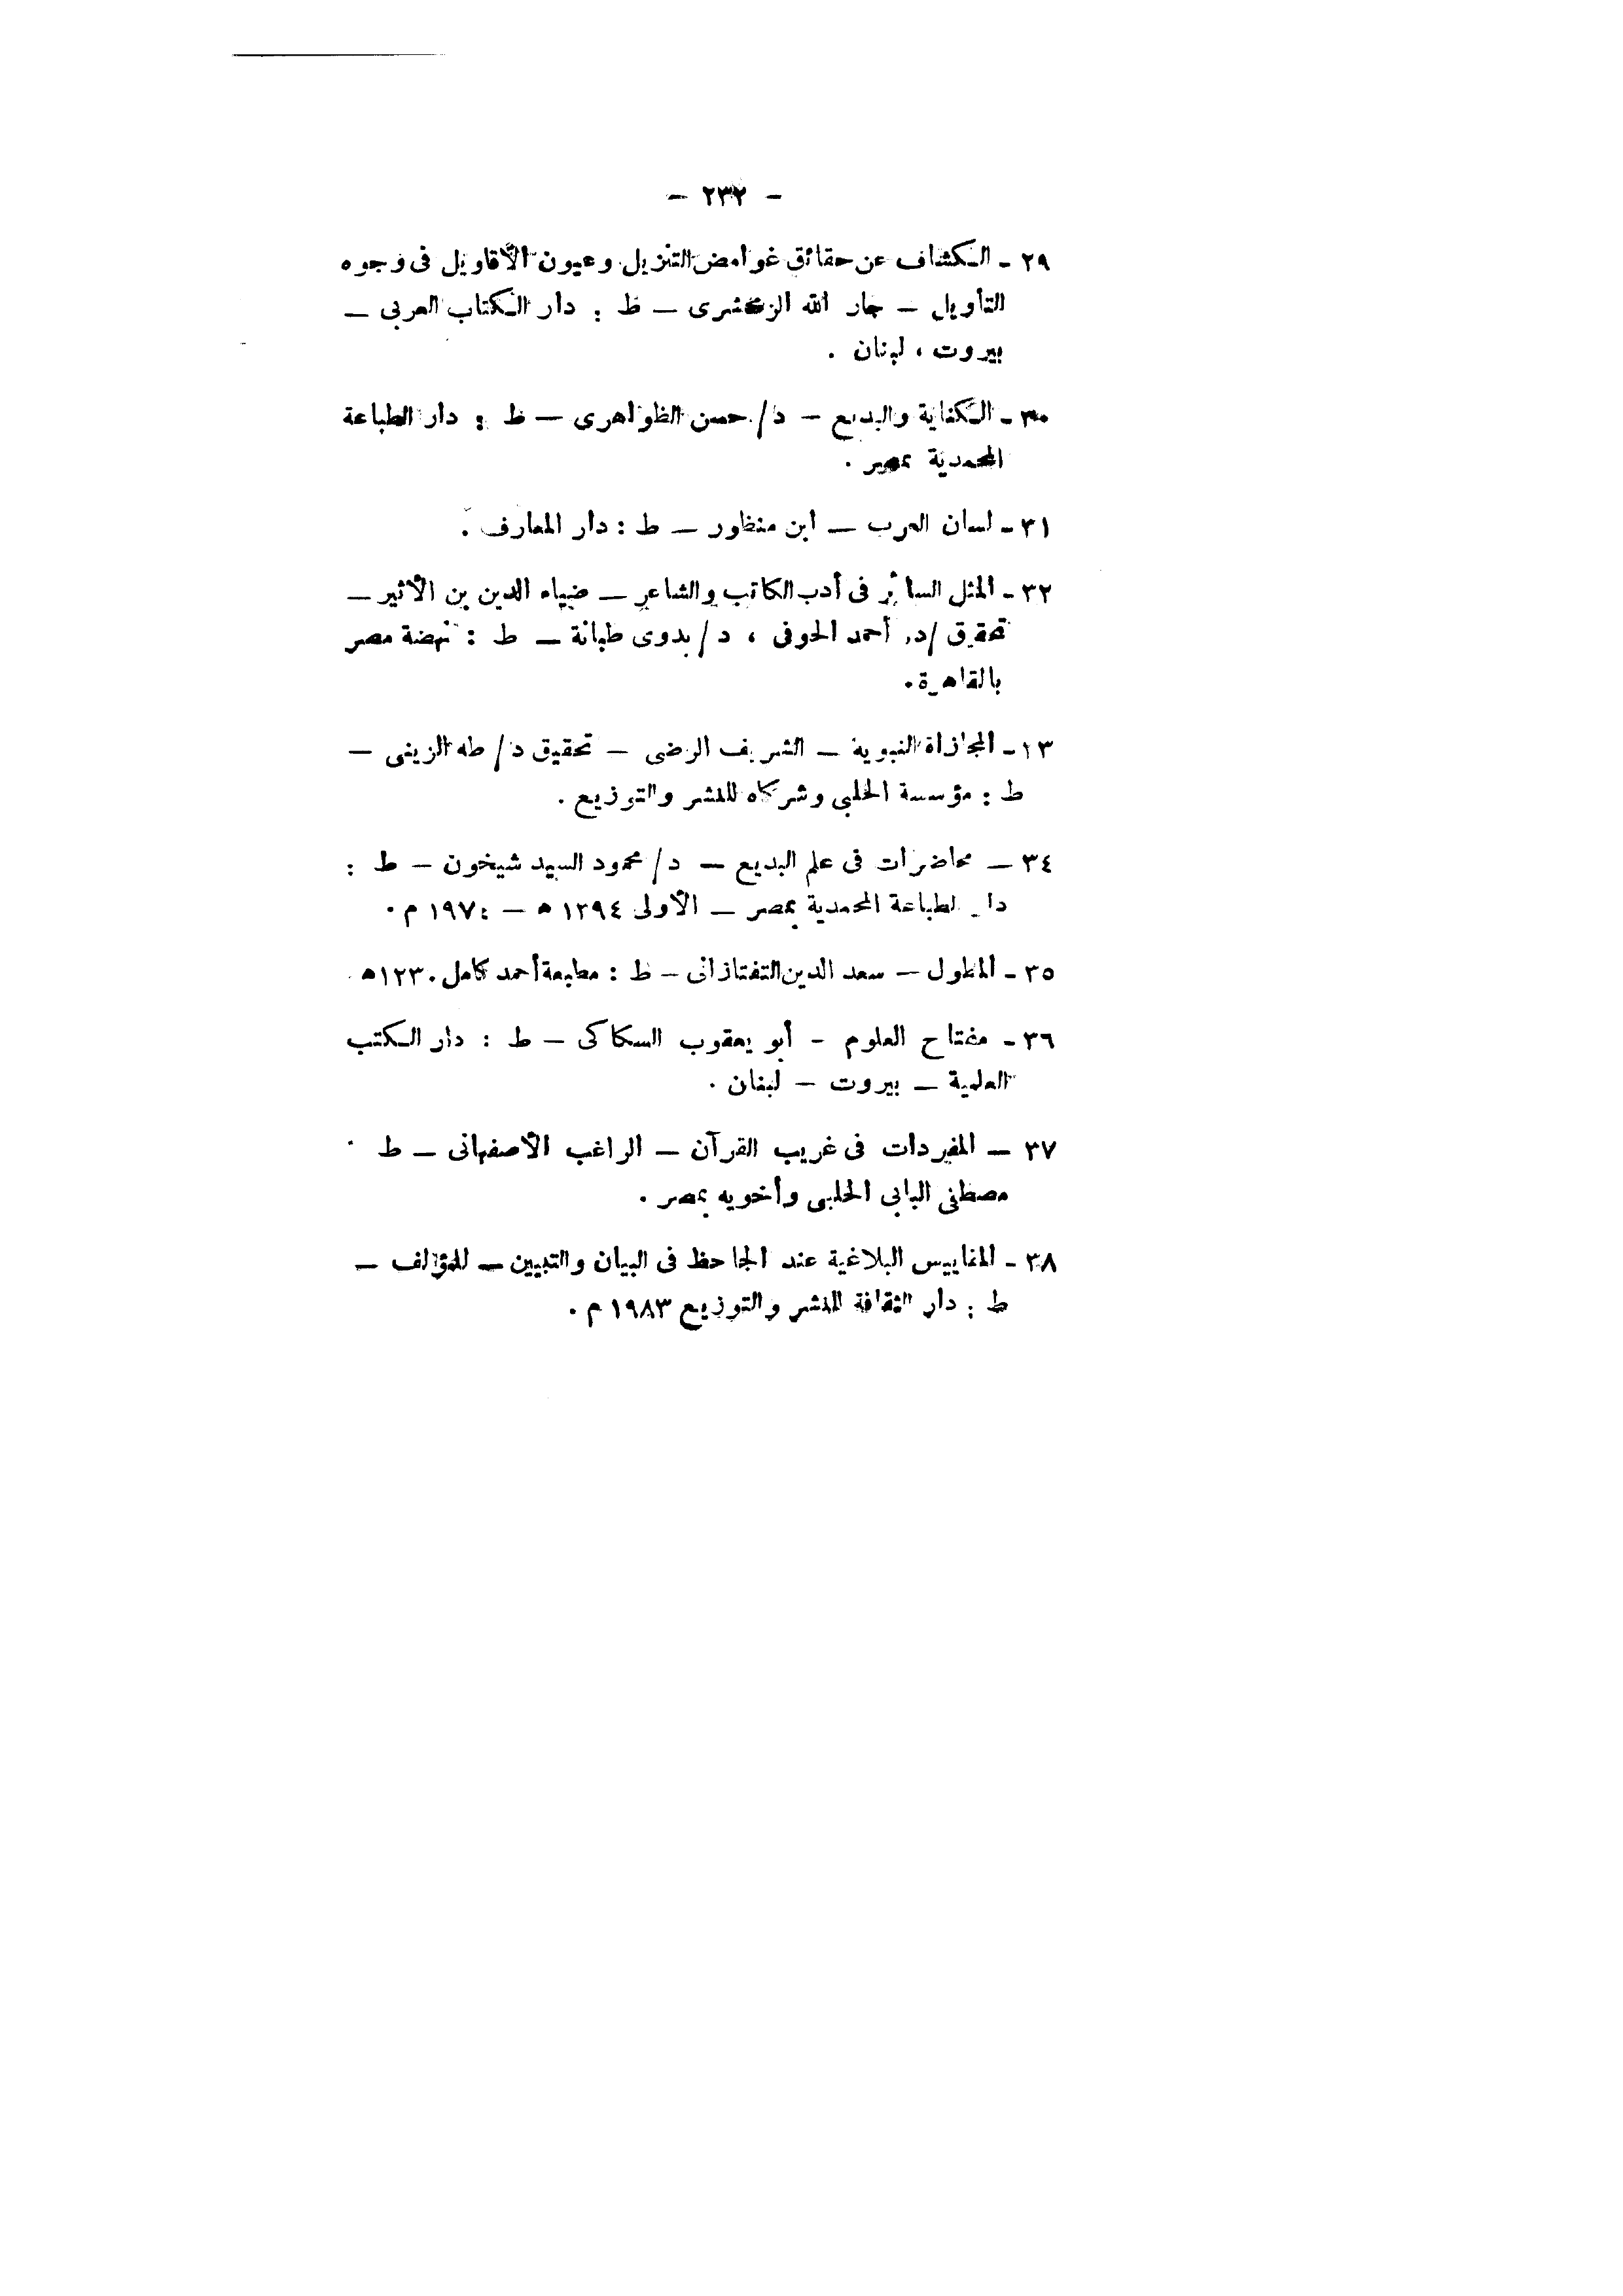 - ٢٣٢ -
٢٩ - الكشاف عن حقائق غوامض التنزيل وعيون الأقاويل فى وجوه
التأويل - جار الله الزمخشرى - ط : دار الكتاب العربى -
بيروت ، لبنان .
٣٠ - الكناية والبديع - د/ حسن الظواهرى - ط : دار الطباعة
المحمدية بمصر .
٣١ - لسان العرب - ابن منظور - ط : دار المعارف .
٣٢ - المثل السائر فى أدب الكاتب والشاعر - ضياء الدين بن الأثير -
تحقيق /د. أحمد الحوفى ، د/ بدوى طبانة - ط : نهضة مصر
بالقاهرة .
١٣ - المجازاة النبوية - الشريف الرضى - تحقيق د/ طه الزينى -
ط : مؤسسة الحلبى وشركاه للنشر والتوزيع .
٣٤ - محاضرات فى علم البديع - د/ محمود السيد شيخون - ط :
دار الطباعة المحمدية بمصر - الأولى ١٣٩٤ هـ - ١٩٧٤ م .
٣٥ - المطول - سعد الدين التفتازانى - ط : مطبعة أحمد كامل ١٢٣٠هـ
٣٦ - مفتاح العلوم - أبو يعقوب السكاكى - ط : دار الكتب
العلمية - بيروت - لبنان .
٣٧ - المفردات فى غريب القرآن - الراغب الأصفهانى - ط
مصطفى البابى الحلبى وأخويه بمصر .
٣٨ - المقاييس البلاغية عند الجاحظ فى البيان والتبيين - للمؤلف -
ط : دار الثقافة للنشر والتوزيع ١٩٨٣ م .